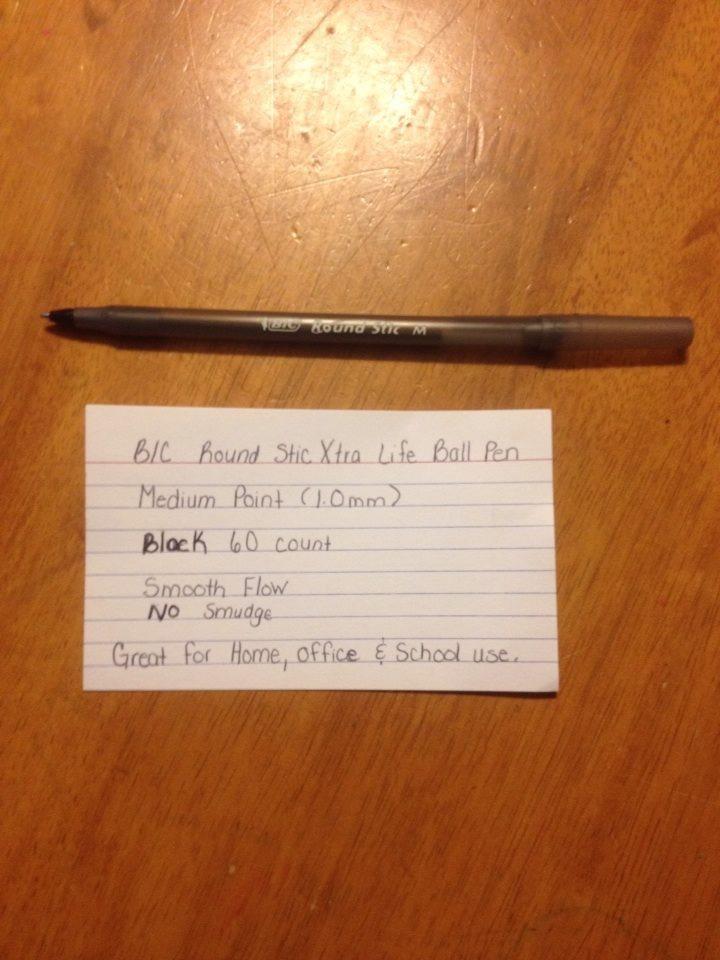 BIC Round Stic M
BIC Round Stic Xtra Life Ball Pen
Medium Point (1.0mm)
Black 60 count
Smooth Flow
NO Smudge
Great for Home, office & School use.